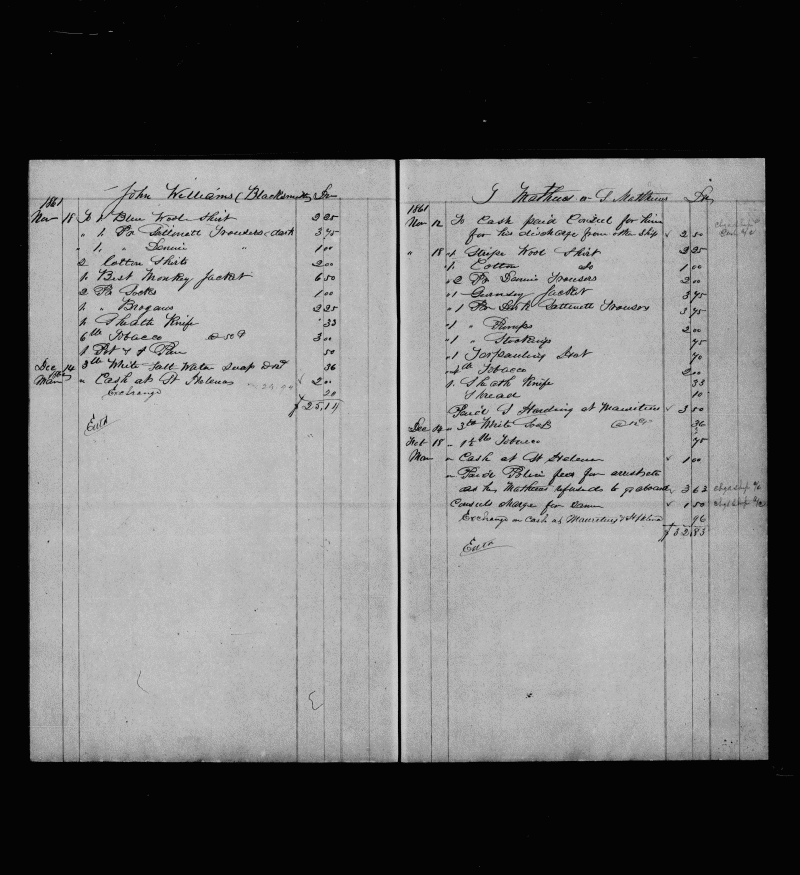 John Williams (Blacksmith) Dr
1861
Nov 18 To 1 Blue Wool Shirt 2 25
" 1 Pr Sattinett Trousers dark 3 75
" 1 " Denim " 1 00
2 Cotton Shirts 2 00
1 Best Monkey Jacket 6 50
2 Pr Socks 1 00
1 " Brogans 2 25
1 Sheath Knife 33
6 lb Tobacco @ 50¢ 3 00
1 Pot & 1 Pan 50
Dec 14 3 lb White Salt Water Soap 36
Mar " Cash at St Helena 2 00
Exchange 20
$ 25,14
Entd
T Mathews or T Matthews Dr
1861
Nov 12 To Cash paid Consul for him
for his discharge from other ship 2 50
" 18 " 1 Stripe Wool Shirt 2 25
" 1 Cotton do 1 00
" 2 Pr Denim Trousers 2 00
" 1 Guernsey Jacket 3 75
" 1 Pr Dark Sattinett Trousers 3 75
" 1 " Pumps 2 00
" 1 " Stockings 75
" 1 Tarpauling Hat 70
" 4 lb Tobacco 2 00
1 Sheath Knife 33
Thread 10
Paid J Harding at Mauritius 3 50
Dec 14 " 3 lb White Soap @ 12¢ 36
Feb 18 " 1½ lb Tobacco 75
Mar " Cash at St Helena 1 00
" Paid Police fees for arrest etc
as he Mathews refused to go aboard 3 63 chgd ship a/c
Consuls charge for same 1 50 chgd ship a/c
Exchange on Cash at Mauritius & St Helena 96
$ 32,83
Entd